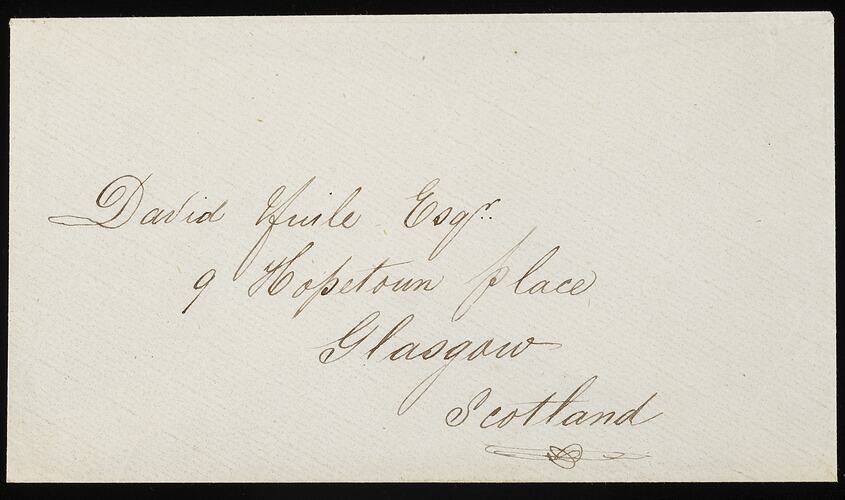 David Yuile Esqr.
9 Hopetoun place
Glasgow
Scotland